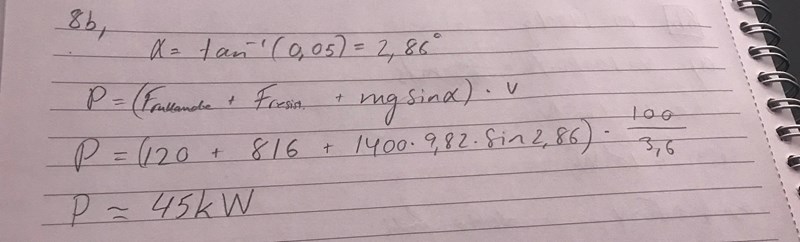 8b,
α = tan⁻¹(0,05) = 2,86°
P = (Frullande + Fresist. + mg sinα) · v
P = (120 + 816 + 1400 · 9,82 · Sin 2,86) · 100/3,6
P ≈ 45kW